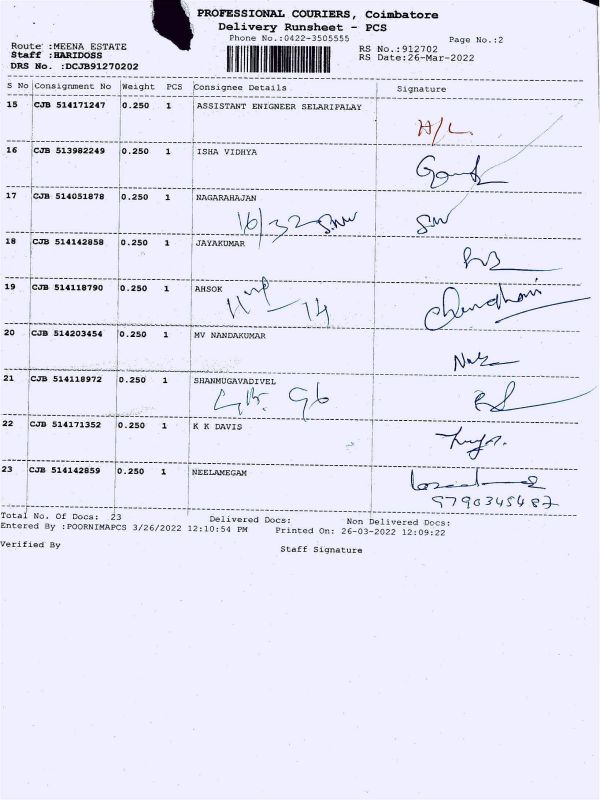 PROFESSIONAL COURIERS, Coimbatore
Delivery Runsheet - PCS
Phone No.:0422-3505555 Page No.:2
Route :MEENA ESTATE RS No.:912702
Staff :HARIDOSS RS Date:26-Mar-2022
DRS No. :DCJB91270202
S No Consignment No Weight PCS Consignee Details Signature
15 CJB 514171247 0.250 1 ASSISTANT ENIGNEER SELARIPALAY
H/L.
16 CJB 513982249 0.250 1 ISHA VIDHYA
17 CJB 514051878 0.250 1 NAGARAHAJAN
16/32
18 CJB 514142858 0.250 1 JAYAKUMAR
19 CJB 514118790 0.250 1 AHSOK
14
20 CJB 514203454 0.250 1 MV NANDAKUMAR
21 CJB 514118972 0.250 1 SHANMUGAVADIVEL
96
22 CJB 514171352 0.250 1 K K DAVIS
23 CJB 514142859 0.250 1 NEELAMEGAM
9790345487
Total No. Of Docs: 23 Delivered Docs: Non Delivered Docs:
Entered By :POORNIMAPCS 3/26/2022 12:10:54 PM Printed On: 26-03-2022 12:09:22
Verified By Staff Signature